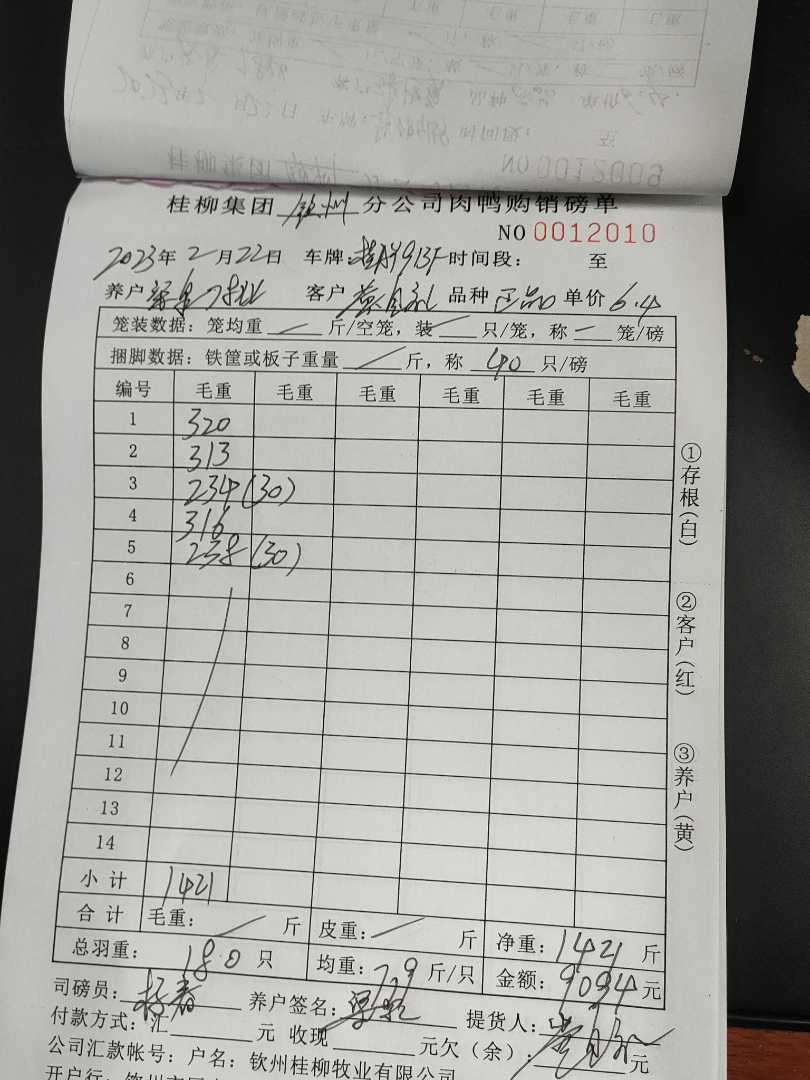 桂柳集团 钦州 分公司肉鸭购销磅单
NO 0012010
2023年2月22日 车牌: 时间段: 至
养户 客户 品种 正品 单价 6.4
笼装数据:笼均重 / 斤/空笼,装 / 只/笼,称 / 笼/磅
捆脚数据:铁筐或板子重量 / 斤,称 40 只/磅
编号 毛重 毛重 毛重 毛重 毛重 毛重
1 320
2 313
3 234(30)
4 316
5 238(30)
6
7
8
9
10
11
12
13
14
小计 1421
合计 毛重: / 斤 皮重: / 斤 净重:1421 斤
总羽重: 180 只 均重:7.9 斤/只 金额:9094 元
司磅员: 养户签名: 提货人:
付款方式:汇 元 收现 元欠(余): 元
公司汇款帐号:户名:钦州桂柳牧业有限公司
①存根(白)
②客户(红)
③养户(黄)